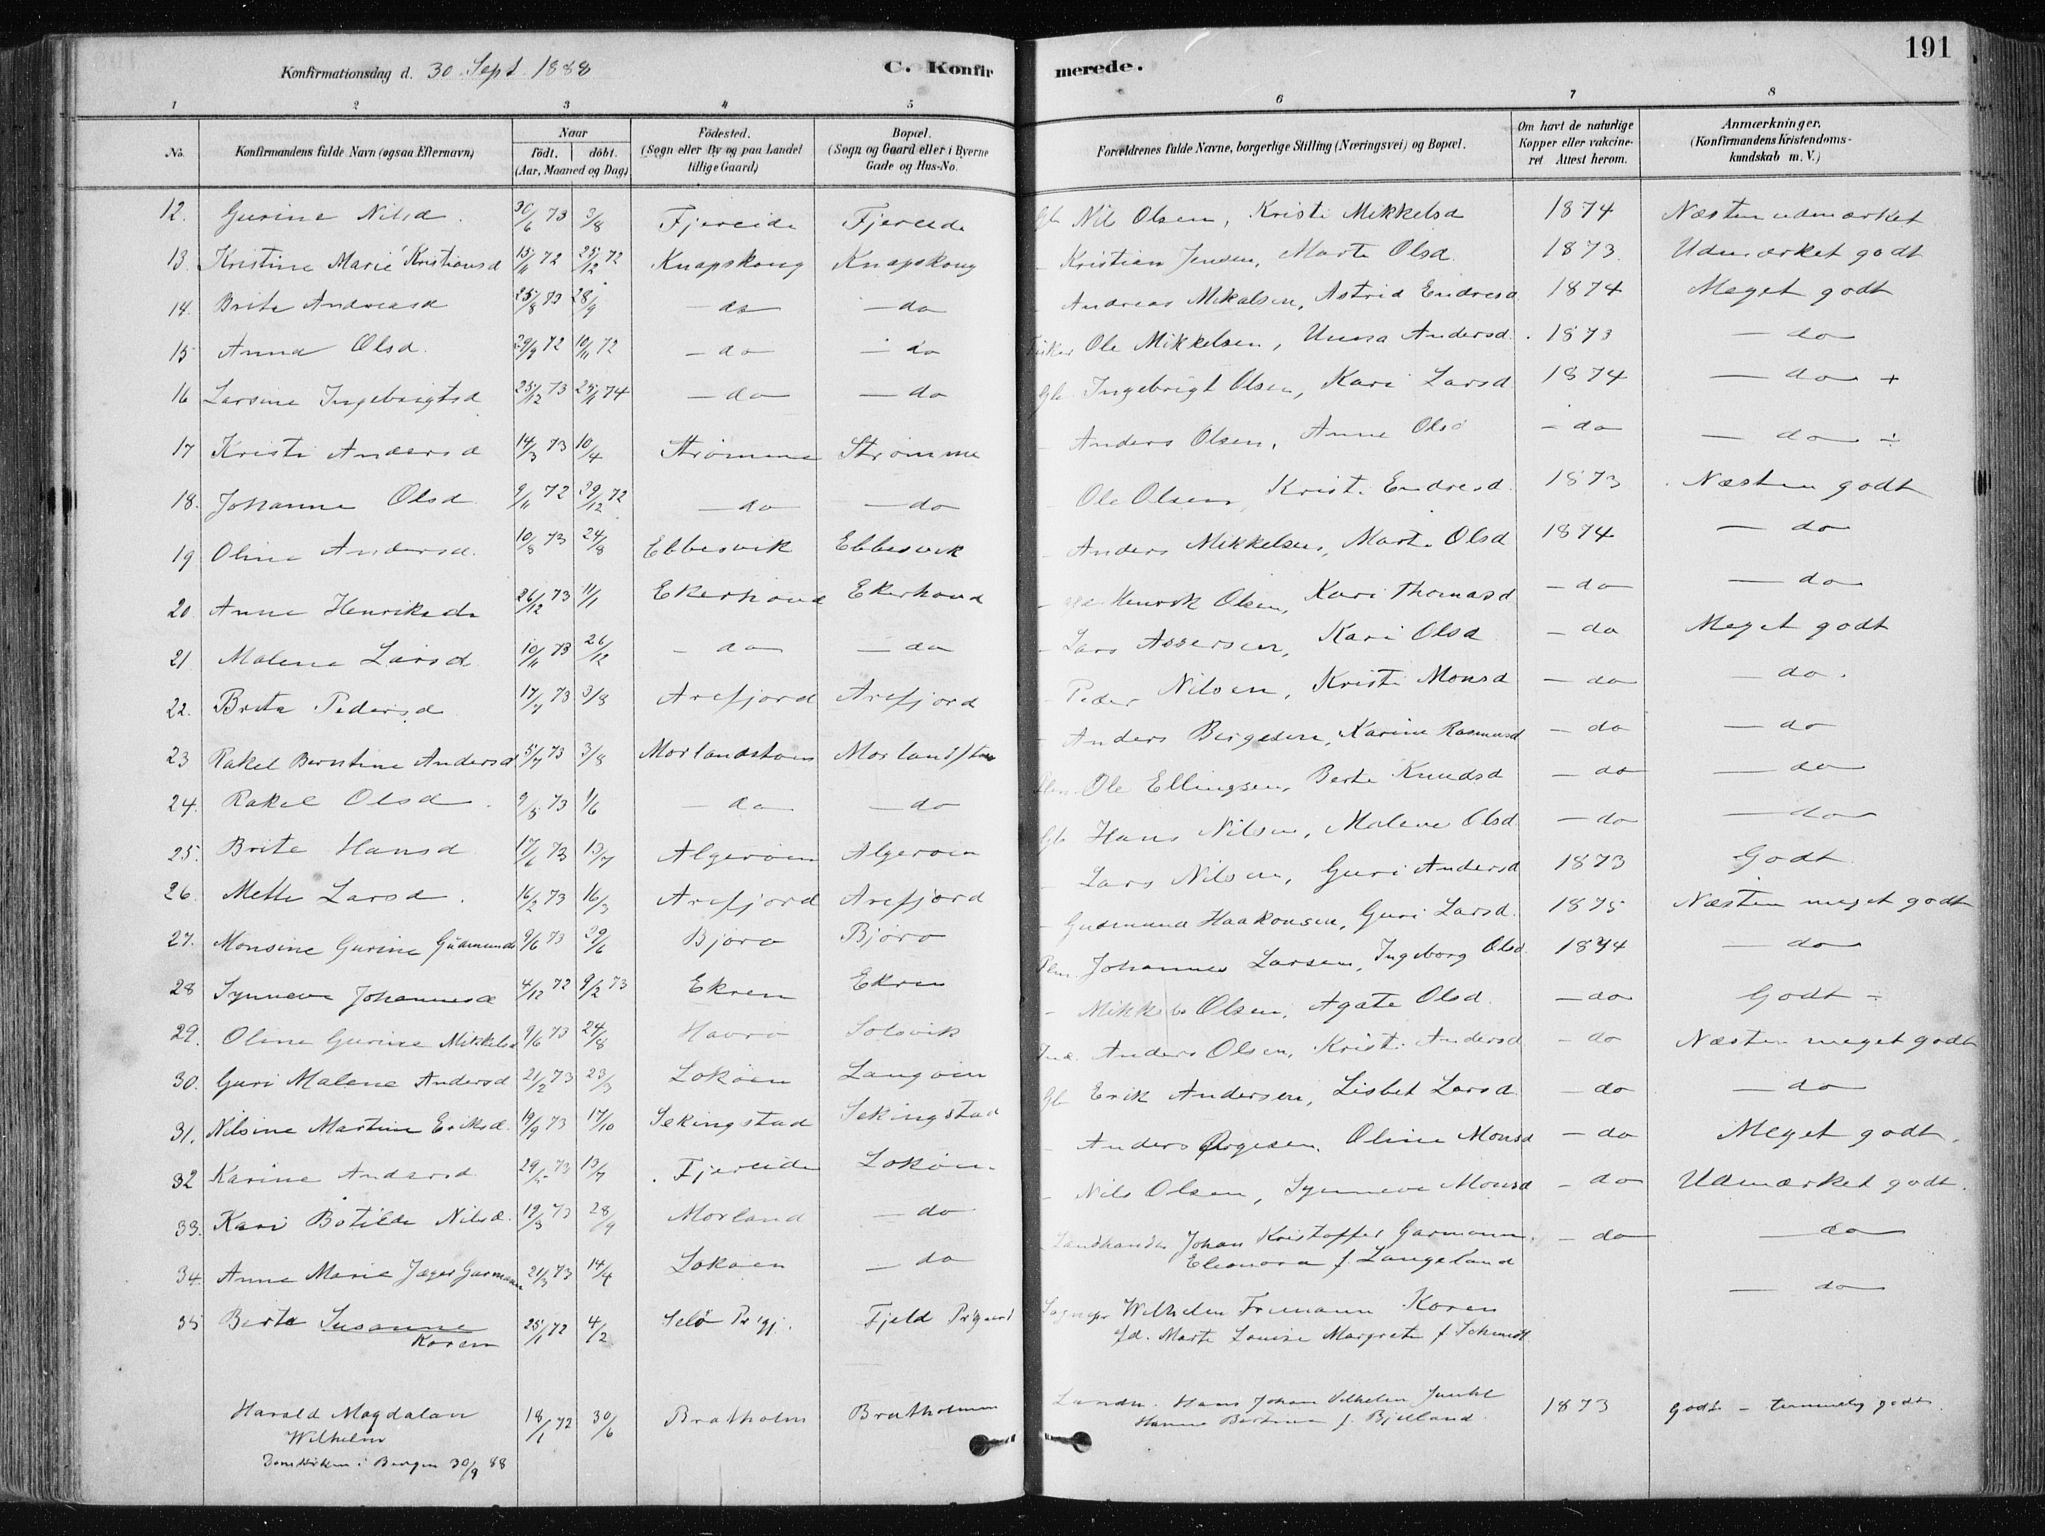 191
Konfirmationsdag d. 30 Sept. 1888 C. Konfirmerede.
1 2 3 4 5 6 7 8
No. Konfirmandens fulde Navn (ogsaa Efternavn) Naar födt. döbt. (Aar, Maaned og Dag) Födested. (Sogn eller By og paa Landet tillige Gaard) Bopæl. (Sogn og Gaard eller i Byerne Gade og Hus-No. Forældrenes fulde Navne, borgerlige Stilling (Næringsvei) og Bopæl. Om havt de naturlige Kopper eller vakcineret Attest herom. Anmærkninger. (Konfirmandens Kristendomskundskab m. V.)
12. Gurine Nilsd. 30/6 73 3/8 Fjereide Fjereide Gb Nils Olsen, Kristi Mikkelsd 1874 Næsten udmærket
13. Kristine Marie Kristiansd 15/11 72 25/12 72 Knapskoug Knapskoug - Kristian Jensen, Marte Olsd 1873 Udmærket godt
14. Brite Andreasd 25/8 73 28/9 - do - do Andreas Mikalsen, Astrid Endresd 1874 Meget godt
15 Anna Olsd. 29/9 72 10/11 72 - do - do Fisker Ole Mikkelsen, Unna Andersd. 1873 - do
16 Larsine Ingebrigtsd 25/12 73 25/1 74 - do - do Gb Ingebrigt Olsen, Kari Larsd 1874 - do +
17 Kristi Andersd 14/3 73 10/4 Strömme Strömme - Anders Olsen, Anne Olsd - do - do ÷
18. Johanne Olsd 9/11 72 29/12 72 - do - do - Ole Olsen, Kristi Endresd. 1873 Næsten godt
19 Oline Andersd. 10/8 73 24/8 Ebbesvik Ebbesvik - Anders Mikkelsen, Marte Olsd 1874 - do
20 Anne Henriksdr 26/12 73 11/1 Ekerhovd Ekerhovd - Henrik Olsen, Kari Thomasd - do - do
21 Malene Larsd. 10/11 73 26/12 - do - do - Lars Assersen, Kari Olsd - do Meget godt
22. Brita Pedersd 17/7 73 3/8 Arefjord Arefjord - Peder Nilsen, Kristi Monsd - do - do.
23 Rakel Berntine Andersd 5/7 73 3/8 Morlandstøen Morlandstøen - Anders Børgesen, Karine Rasmusd - do - do
24. Rakel Olsd. 9/5 73 1/6 - do - do Ole Ellingsen, Berte Knudsd - do - do
25. Brite Hansd 17/6 73 13/7 Algerøen Algerøen Gb Hans Nilsen, Malene Olsd. - do - do
26. Mette Larsd. 16/2 73 16/3 Arefjord Arefjord - Lars Nilsen, Guri Andersd 1873 Godt
27. Monsine Gurine Gudmunds 9/6 73 29/6 Bjørø Bjørø - Gudmund Haakonsen, Guri Larsd. 1875 Næsten meget godt
28 Synneve Johannesd 4/12 72 9/2 73 Ekren Ekren Johannes Larsen, Ingeborg Olsd. 1874 - do
29. Oline Gurine Mikkelsd 9/6 73 24/8 Havrø Solsvik - Mikkel Olsen, Agate Olsd. - do Godt ÷
30. Guri Malene Andersd 21/2 73 23/3 Lokøen Langøen Anders Olsen, Kristi Andersd - do Næsten meget godt
31. Nilsine Martine Eriksd. 19/9 73 17/10 Sekingstad Sekingstad Gb Erik Andersen, Lisbet Larsd. - do - do
32 Karine Andersd 29/5 73 13/7 Fjereide Lokøen - Anders Ørgesen, Oline Monsd - do Meget godt.
33. Kari Botilde Nilsd. 19/3 73 28/9 Morland - do - Nils Olsen, Synneve Monsd - do Udmærket godt.
34. Anne Marie Jæger Garmann 21/3 73 14/4 Lokøen - do Landhandler Johan Kristoffer Garmann, - do - do
Eleonora f. Langeland
35 Berte Susanne 25/1 72 4/2 Selö Prgj. Fjeld Prgaard Sognepr Wilhelm Frimann Koren - do
Koren Marte Louise Margrete f. Schmidt
Harald Magdalon 18/1 72 30/6 Bratholm Bratholmen Landh. Hans Johan Vilhelm 1873 godt - temmelig godt.
Wilhelm Hanna Bertine f. Bjelland
Domkirken i Bergen 30/9 88